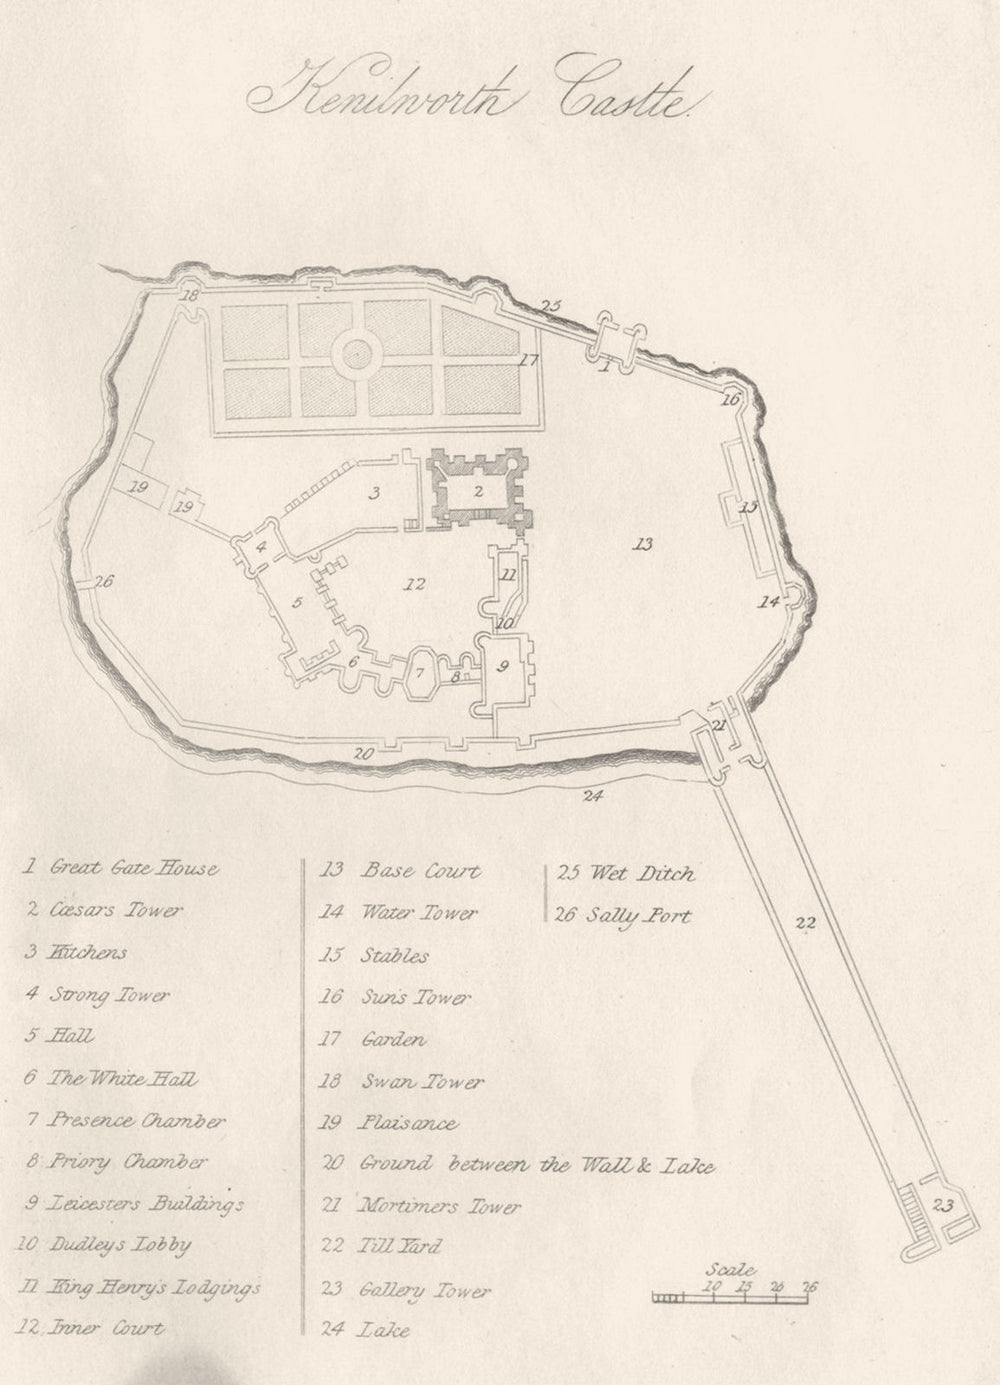 Kenilworth Castle.
18
25
1
17
16
19
19
3
2
15
4
13
12
11
26
5
14
10
6
7
8
9
21
20
24
22
23
1 Great Gate House
2 Cæsars Tower
3 Kitchens
4 Strong Tower
5 Hall
6 The White Hall
7 Presence Chamber
8 Priory Chamber
9 Leicesters Buildings
10 Dudleys Lobby
11 King Henry's Lodgings
12 Inner Court
13 Base Court
14 Water Tower
15 Stables
16 Sun's Tower
17 Garden
18 Swan Tower
19 Plaisance
20 Ground between the Wall & Lake
21 Mortimers Tower
22 Till Yard
23 Gallery Tower
24 Lake
25 Wet Ditch
26 Sally Port
Scale
10 15 20 26